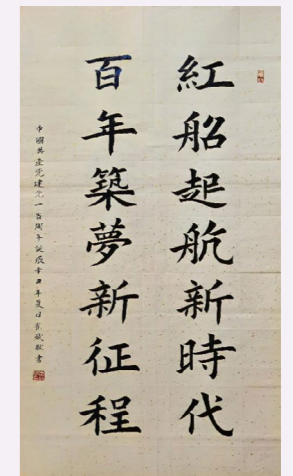 紅船起航新時代
百年築夢新征程
中國共產党建党一百周年誕辰辛丑年夏日